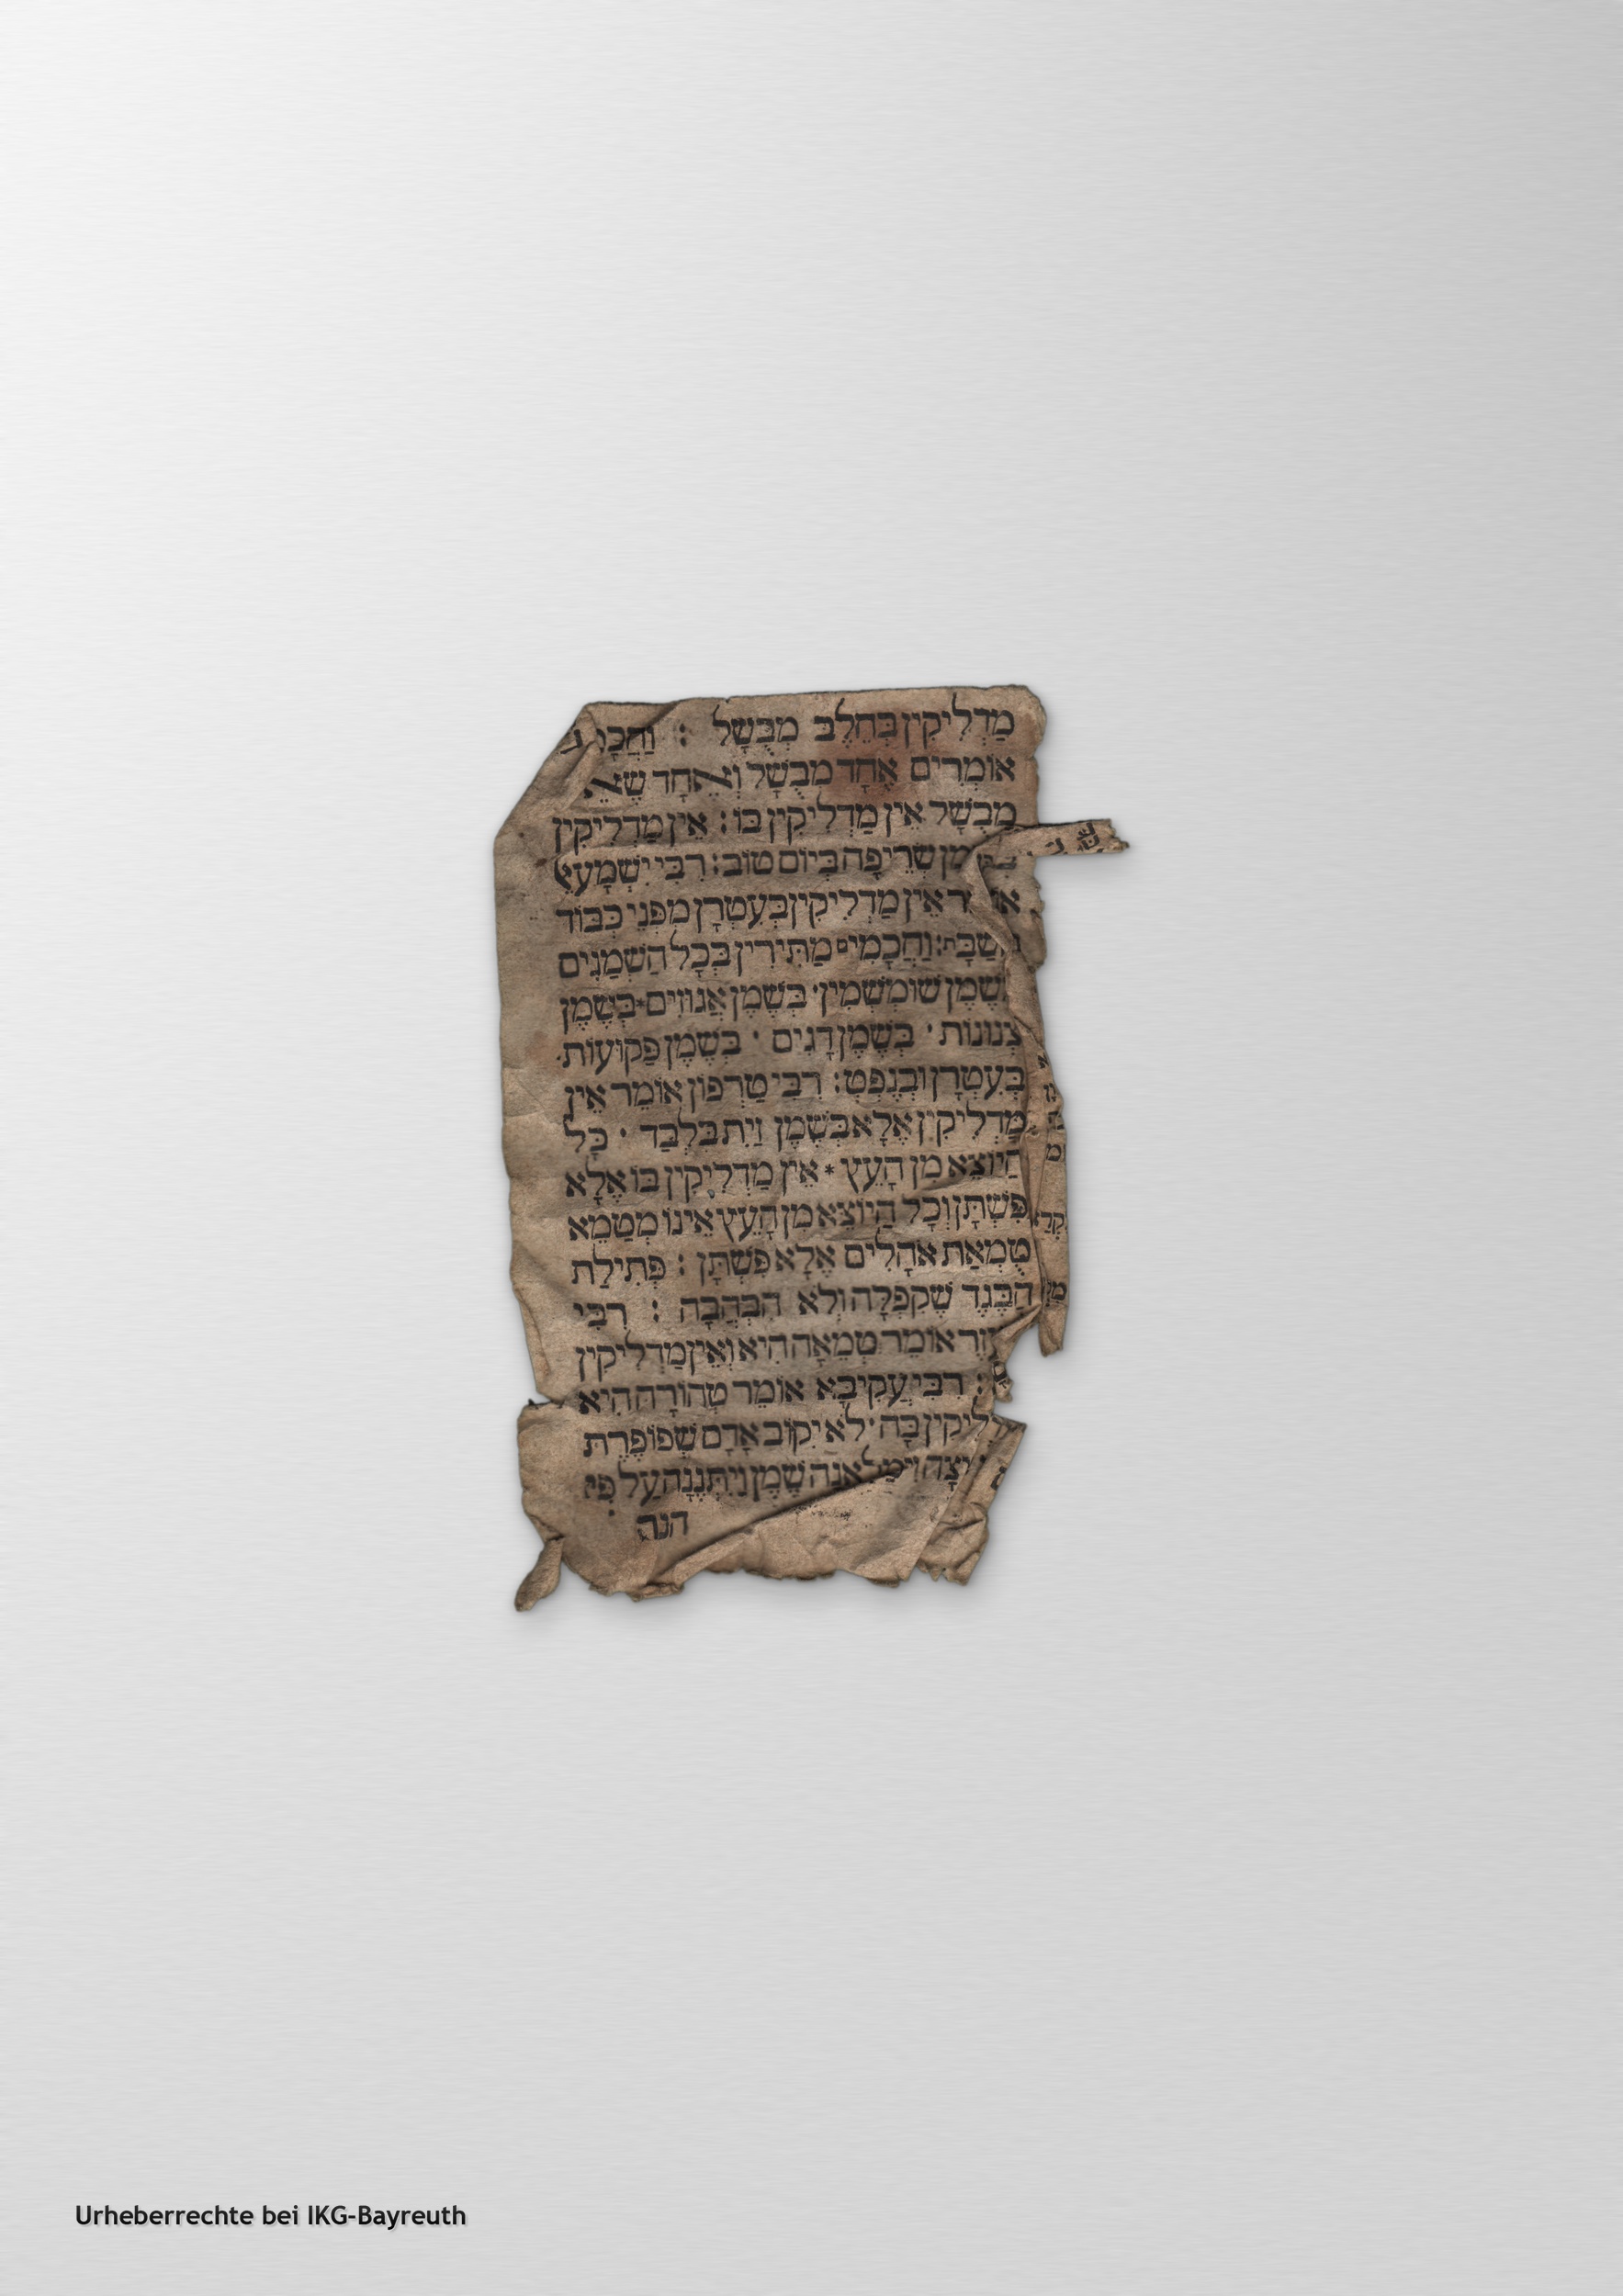 מַדְלִיקִין בְּחֵלֶב מְבֻשָּׁל : וַחֲכָמִ
אוֹמְרִים אֶחָד מְבֻשָּׁל וְאֶחָד שֶׁאֵ
מְבֻשָּׁל אֵין מַדְלִיקִין בּוֹ : אֵין מַדְלִיקִין
שְׂרֵיפָה בְּיוֹם טוֹב : רַבִּי יִשְׁמָעֵאל
אֵין מַדְלִיקִין בְּעִטְרָן מִפְּנֵי כְּבוֹד
שַׁבָּת : וַחֲכָמִים מַתִּירִין בְּכָל הַשְּׁמָנִים
בְּשֶׁמֶן שׁוּמְשְׁמִין · בְּשֶׁמֶן אֱגוֹזִים * בְּשֶׁמֶן
צְנוֹנוֹת · בְּשֶׁמֶן דָּגִים · בְּשֶׁמֶן פַּקּוּעוֹת ·
בְּעִטְרָן וּבְנֵפְט : רַבִּי טַרְפוֹן אוֹמֵר אֵין
מַדְלִיקִין אֶלָּא בְּשֶׁמֶן זַיִת בִּלְבַד · כָּל
הַיּוֹצֵא מִן הָעֵץ * אֵין מַדְלִיקִין בּוֹ אֶלָּא
פִּשְׁתָּן וְכָל הַיּוֹצֵא מִן הָעֵץ אֵינוֹ מְטַמֵּא
טֻמְאַת אֹהָלִים אֶלָּא פִּשְׁתָּן : פְּתִילַת
הַבֶּגֶד שֶׁקִּפְּלָהּ וְלֹא הִבְהֲבָהּ : רַבִּי
אוֹמֵר טְמֵאָה הִיא וְאֵין מַדְלִיקִין
: רַבִּי עֲקִיבָא אוֹמֵר טְהוֹרָה הִיא
בָּהּ · לֹא יִקּוֹב אָדָם שְׁפוֹפֶרֶת
וִימַלְאֶנָּה שֶׁמֶן וְיִתְּנֶנָּה עַל פִּי
הנר
Urheberrechte bei IKG-Bayreuth